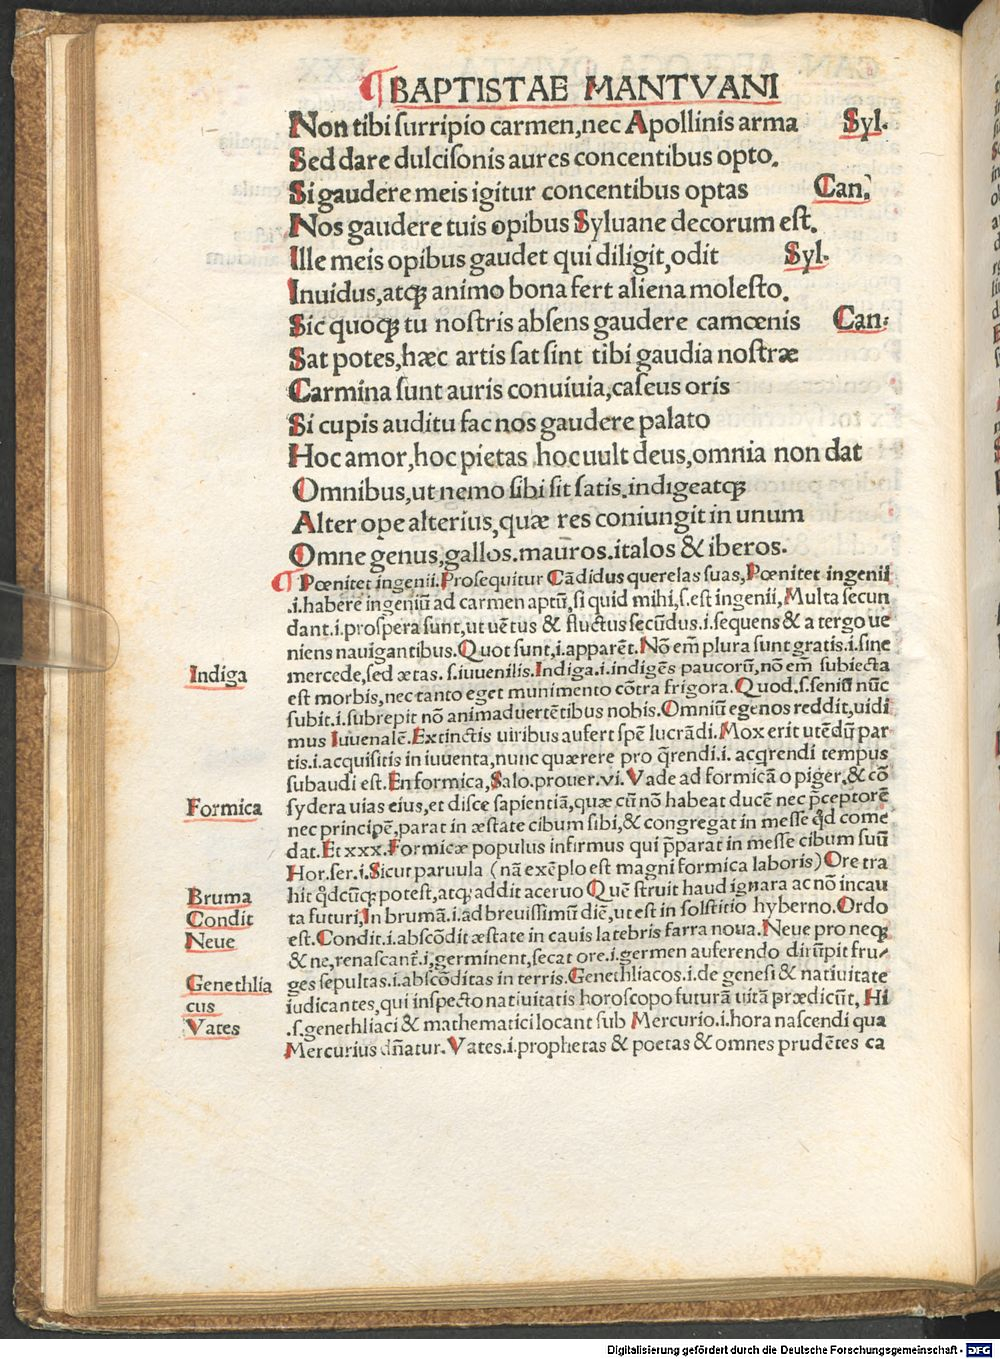 ¶BAPTISTAE MANTVANI
Non tibi surripio carmen,nec Apollinis arma Syl.
Sed dare dulcisonis aures concentibus opto.
Si gaudere meis igitur concentibus optas Can.
Nos gaudere tuis opibus Syluane decorum est.
Ille meis opibus gaudet qui diligit,odit Syl.
Inuidus,atqꝫ animo bona fert aliena molesto.
Sic quoqꝫ tu nostris absens gaudere camœnis Can:
Sat potes,hæc artis sat sint tibi gaudia nostræ
Carmina sunt auris conuiuia,caseus oris
Si cupis auditu fac nos gaudere palato
Hoc amor,hoc pietas hoc uult deus,omnia non dat
Omnibus,ut nemo sibi sit satis.indigeatqꝫ
Alter ope alterius,quæ res coniungit in unum
Omne genus,gallos.mauros.italos & iberos.
¶Pœnitet ingenii.Prosequitur Cādidus querelas suas,Pœnitet ingenii
.i.habere ingeniū ad carmen aptū,si quid mihi,s.est ingenii,Multa secun
dant.i.prospera sunt,ut uētus & fluctus secūdus.i.sequens & a tergo ue
niens nauigantibus.Quot sunt,i.apparēt.Nō em̄ plura sunt gratis.i.sine
Indiga mercede,sed ætas.s.iuuenilis.Indiga.i.indigēs paucorū,nō em̄ subiecta
est morbis,nec tanto eget munimento cōtra frigora.Quod.s.seniū nūc
subit.i.subrepit nō animaduertētibus nobis.Omniū egenos reddit,uidi
mus Iuuenalē.Extinctis uiribus aufert spē lucrādi.Mox erit utēdū par
tis.i.acquisitis in iuuenta,nunc quærere pro q̄rendi.i.acq̄rendi tempus
subaudi est.En formica,Salo.prouer.vi.Vade ad formicā o piger,& cō
Formica sydera uias eius,et disce sapientiā,quæ cū nō habeat ducē nec p̄ceptorē
nec principē,parat in æstate cibum sibi,& congregat in messe q̄d come
dat.Et xxx.Formicæ populus infirmus qui p̄parat in messe cibum suū
Hor.ser.i.Sicut paruula (nā exēplo est magni formica laboris) Ore tra
Bruma hit q̄dcūqꝫ potest,atqꝫ addit aceruo Quē struit haud ignara ac nō incau
Condit ta futuri,In brumā.i.ad breuissimū diē,ut est in solstitio hyberno.Ordo
Neue est.Condit.i.abscōdit æstate in cauis latebris farra noua.Neue pro neqꝫ
& ne,renascant̄.i,germinent,secat ore.i.germen auferendo dirūpit fru-
Genethlia ges sepultas.i.abscōditas in terris.Genethliacos.i.de genesi & natiuitate
cus iudicantes,qui inspecto natiuitatis horoscopo futurā uitā prædicūt, Hi
Vates .s.genethliaci & mathematici locant sub Mercurio.i.hora nascendi qua
Mercurius dn̄atur.Vates.i.prophetas & poetas & omnes prudētes ca
Digitalisierung gefördert durch die Deutsche Forschungsgemeinschaft - DFG